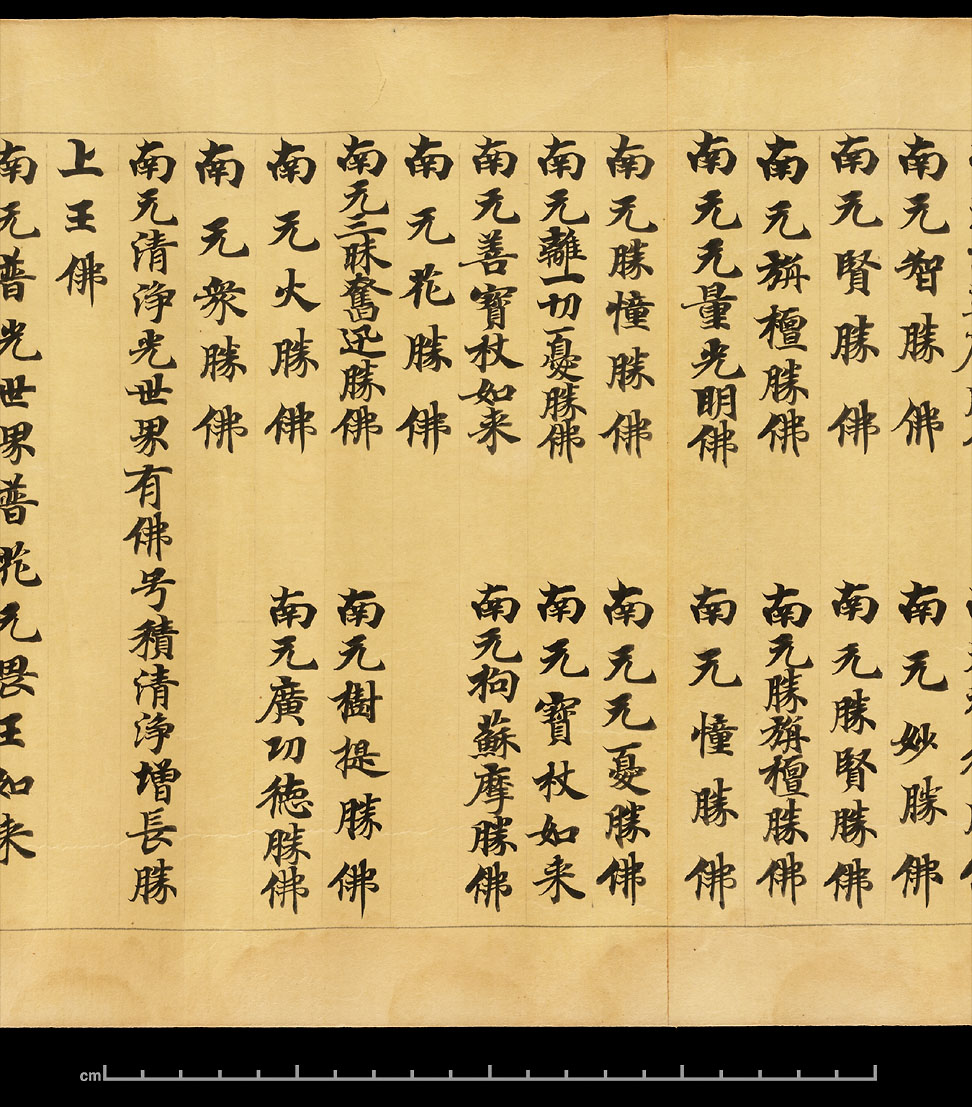 南无智勝佛　南无妙勝佛
南无賢勝佛　南无勝賢勝佛
南无栴檀勝佛　南无勝栴檀勝佛
南无无量光明佛　南无憧勝佛
南无勝憧勝佛　南无无憂勝佛
南无離一切憂勝佛　南无寶杖如来
南无善寶杖如来　南无拘蘇摩勝佛
南无花勝佛
南无三昧奮迅勝佛　南无樹提勝佛
南无火勝佛　南无廣功徳勝佛
南无衆勝佛
南无清浄光世界有佛号積清浄增長勝
上王佛
南无普光世界普花无畏王如来
cm